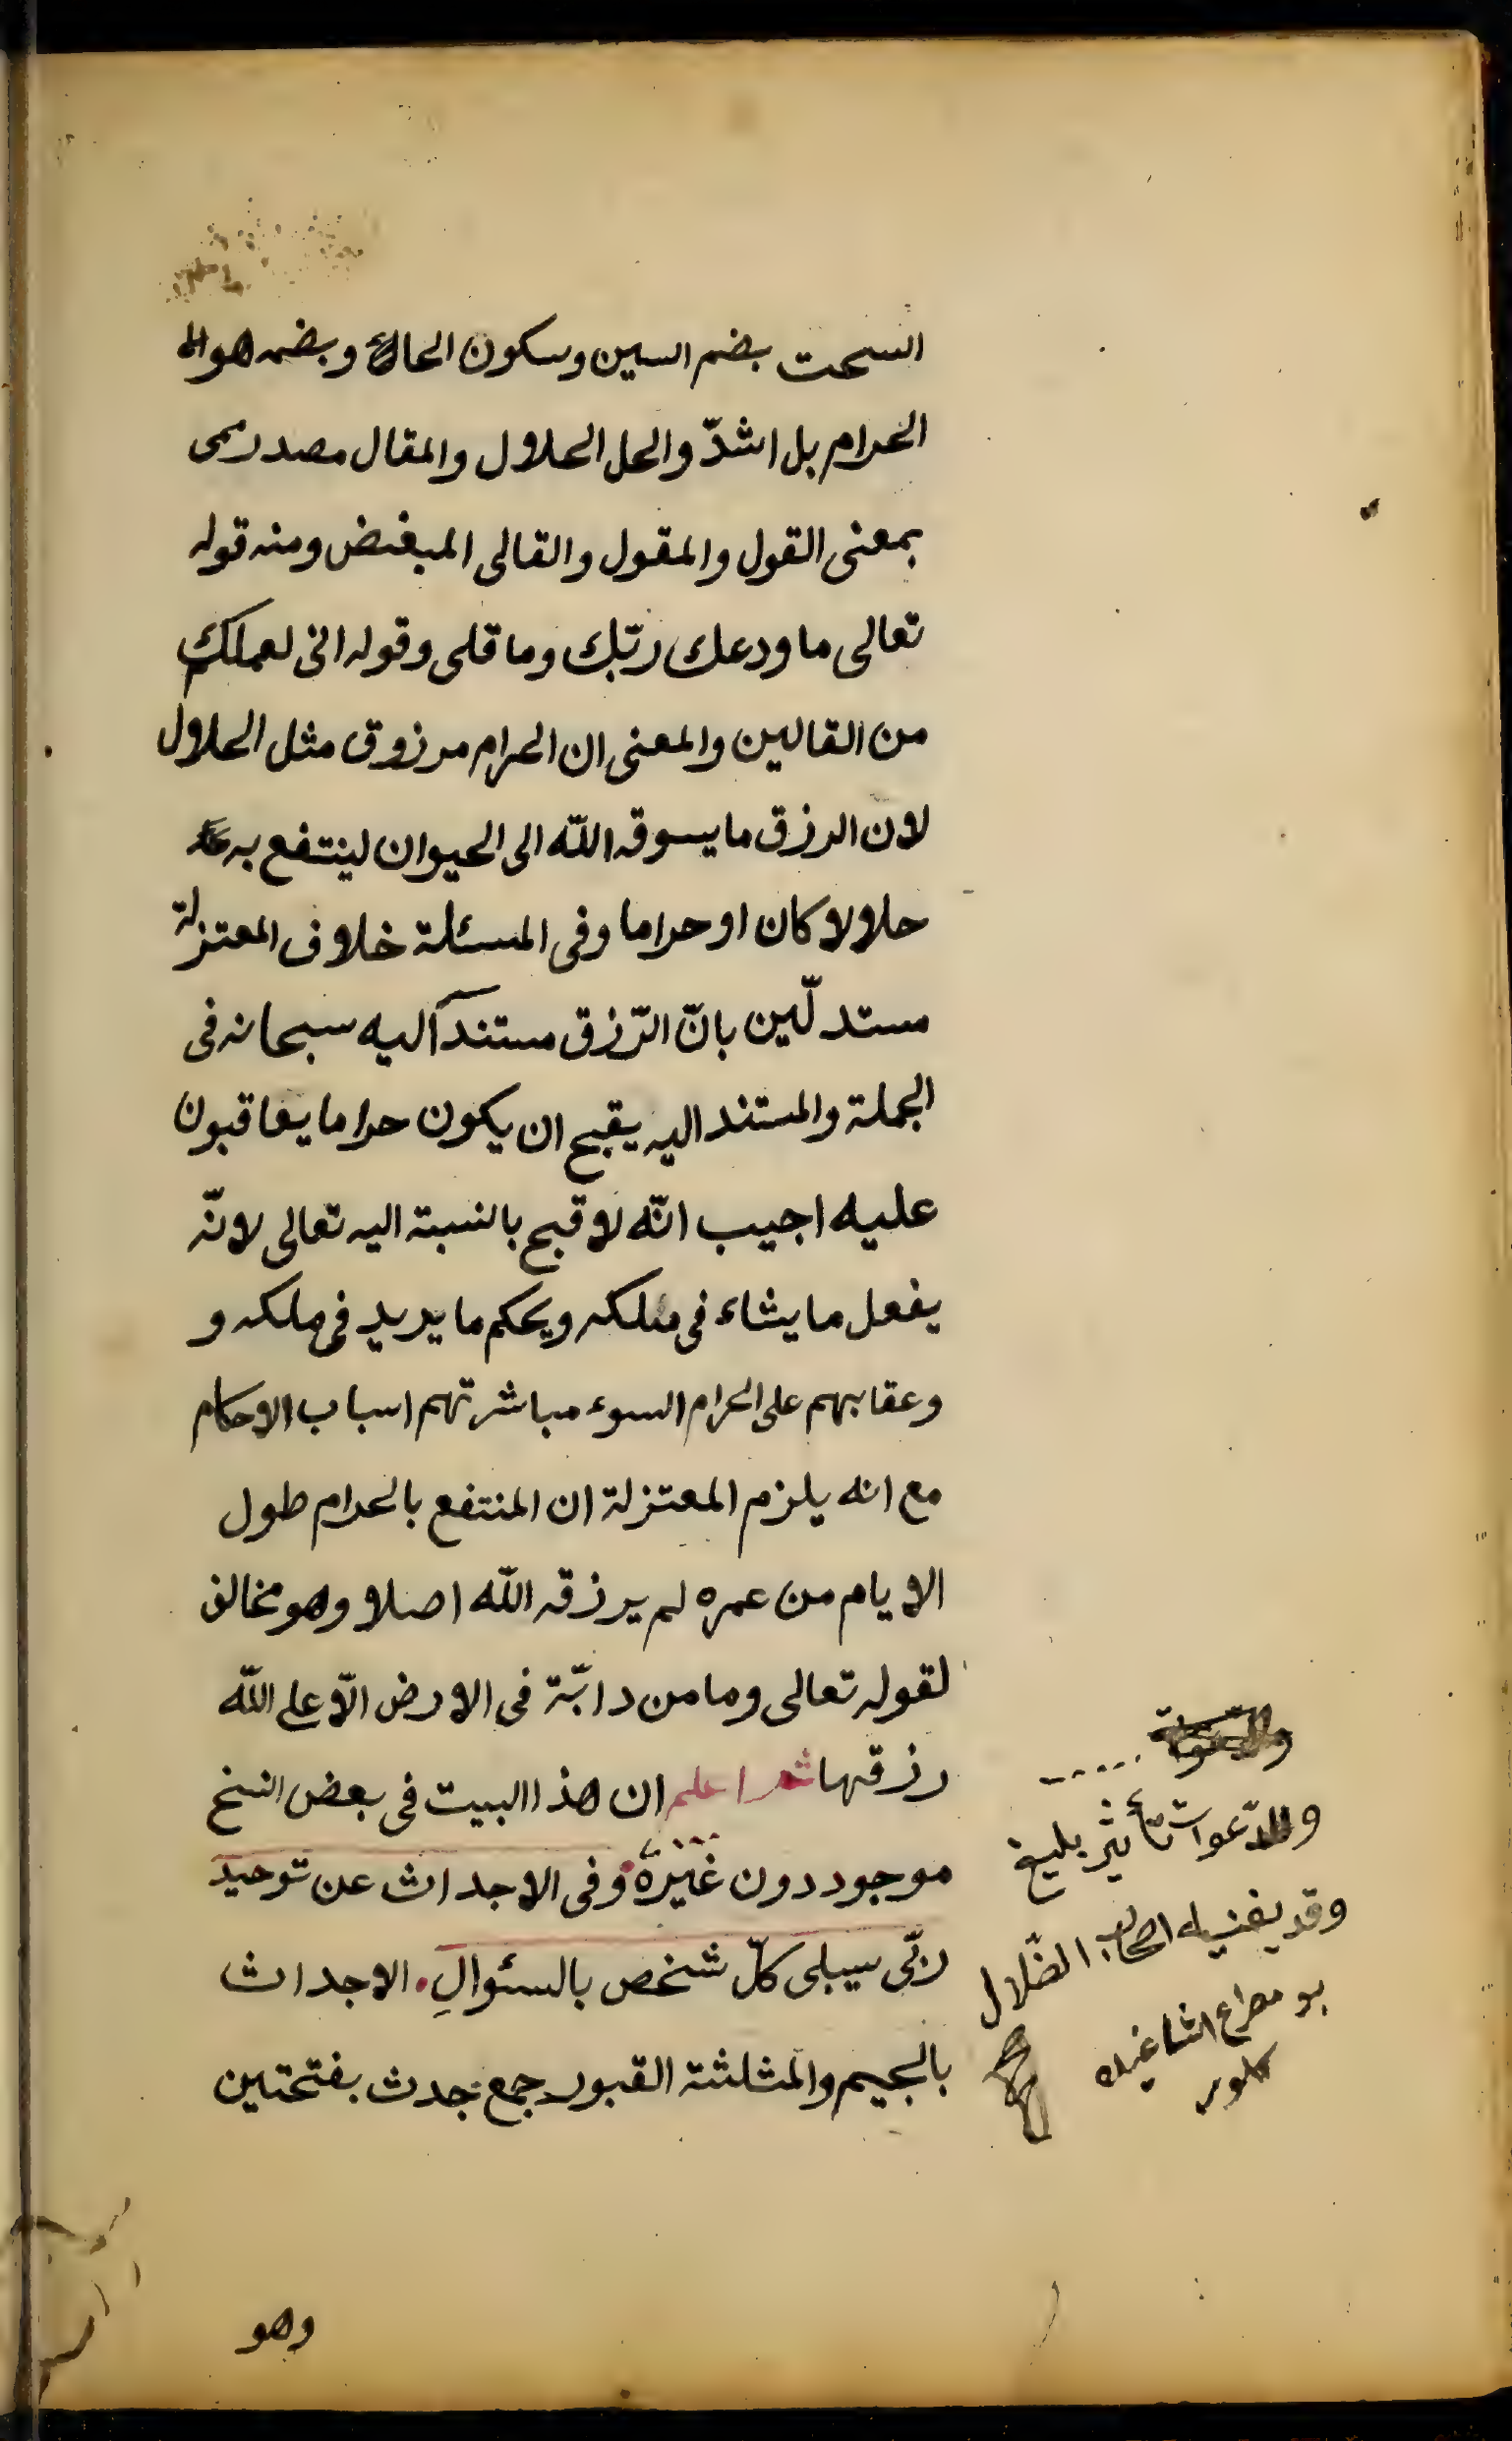 السحت بضم السين وسكون الحاء وبضمه هو
الحرام بل اشدّ والحل الحلال والمقال مصدر
بمعنى القول والمقول والقالى المبغض ومنه قوله
تعالى ما ودعك ربّك وما قلى وقوله انى لعملكم
من القالين والمعنى ان الحرام مرزوق مثل الحلال
لان الرزق ما يسوقه اللّه الى الحيوان لينتفع به
حلالا كان او حراما وفى المسئلة خلاف المعتزلة
مستدلّين بانّ الرّزق مستندا اليه سبحانه فى
الجملة والمستند اليه يقبح ان يكون حراما يعاقبون
عليه اجيب انّه لا قبح بالنسبة اليه تعالى لانّه
يفعل ما يشاء فى ملكه ويحكم ما يريد فى ملكه و
وعقابهم على الحرام السوء مباشرتهم اسباب الاحكام
مع انه يلزم المعتزلة ان المنتفع بالحرام طول
الايام من عمره لم يرزقه اللّه اصلا وهو مخالف
لقوله تعالى وما من دابّة فى الارض الّا على اللّه
رزقها ثم اعلم ان هذا البيت فى بعض النسخ
موجود دون غيره وفى الاجداث عن توحيد
ربّى سيبلى كلّ شخص بالسئوالِ. الاجداث
بالجيم والمثلثة القبور جمع جدث بفتحتين
وللدّعوات تأثير بليغ
وقد ينفيه اصحاب الضّلال
بو مصراع اشاغيده
كلور
وهو